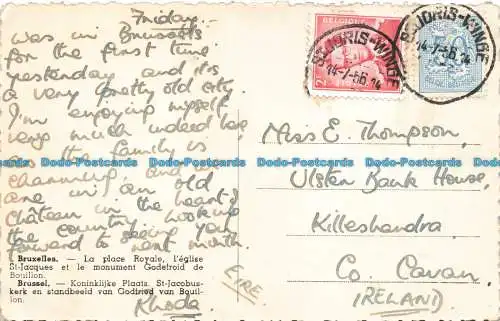 Friday
was in Brussels
for the first time
yesterday and it's
a very pretty old city.
I'm enjoying myself
very much indeed here
as the family is
charming and we
are in an old
Château in the heart of
the country. Looking
forward to seeing you
next month
Rhoda.
Bruxelles. — La place Royale, l'église
St-Jacques et le monument Godefroid de
Bouillon.
Brussel. — Koninklijke Plaats. St-Jacobus-
kerk en standbeeld van Godfried van Bouil-
lon.
BELGIQUE
ST-JORIS-WINGE
14-7-56 14
ST-JORIS-WINGE
14-7-56 14
Miss E. Thompson,
Ulster Bank House,
Killeshandra
Co. Cavan.
IRELAND
EIRE
Dodo-Postcards Dodo-Postcards Dodo-Postcards Dodo-Postcards
Dodo-Postcards Dodo-Postcards Dodo-Postcards Dodo-Postcards